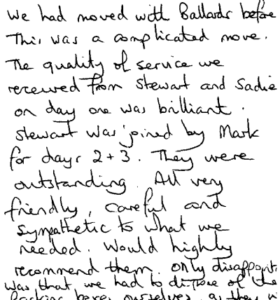 We had moved with Ballards before
This was a complicated move.
The quality of service we
received from Stewart and Sadie
on day one was brilliant.
Stewart was joined by Mark
for days 2+3. They were
outstanding. All very
friendly, careful and
sympathetic to what we
needed. Would highly
recommend them. Only disappoint
was that we had to dispose of the
packing boxes ourselves as they